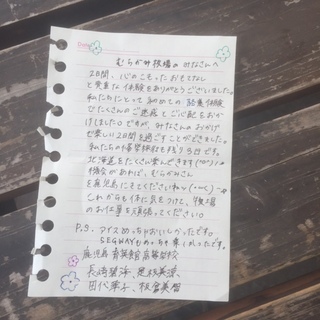 むらかみ牧場のみなさんへ
2日間、心のこもったおもてなし
と貴重な体験をありがとうございました。
私たちにとって初めての酪農体験
でたくさんのご迷惑とご心配をおか
けしました。ですが、みなさんのおかげ
で楽しい2日間を過ごすことができました。
私たちの修学旅行も残り3日です。
北海道をたくさん楽しんできます(^o^)/
機会があれば、むらかみさん
も鹿児島にきてくださいね
これからも体に気を付けて、牧場
のお仕事を頑張ってください。
P.S. アイスめっちゃおいしかったです。
SEGWAYもめっちゃ楽しかったです。
鹿児島 育英館高等学校